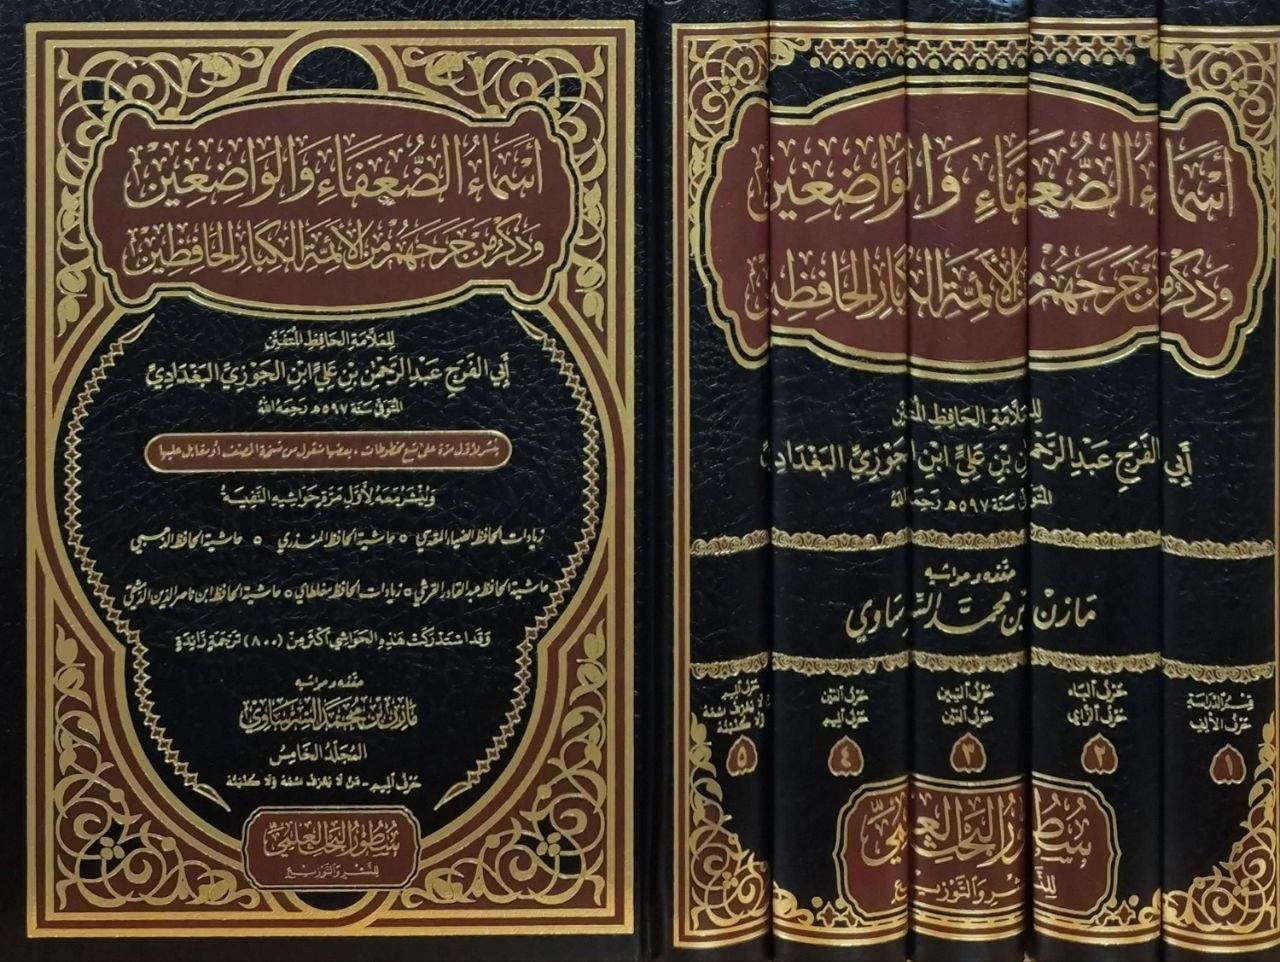 أسماء الضعفاء والواضعين
وذكر من جرحهم من الأئمة الكبار الحافظين
للعلامة الحافظ المتفنن
أبي الفرج عبد الرحمن بن علي ابن الجوزي البغدادي
المتوفى سنة ٥٩٧ هـ رحمه الله
ينشر لأول مرة على تسع مخطوطات، بعضها منقول من نسخة المصنف أو مقابل عليها
وينشر معه لأول مرة حواشيه النفيسة
زيادات الحافظ الضياء المقدسي ٥ حاشية الحافظ المنذري ٥ حاشية الحافظ الذهبي
حاشية الحافظ عبد القادر القرشي ٥ زيادات الحافظ مغلطاي ٥ حاشية الحافظ ابن ناصر الدين الدمشقي
وقد استدركت هذه الحواشي أكثر من (٨٠٠) ترجمة زائدة
حققه وحواشيه
مازن بن محمد السرساوي
المجلد الخامس
حرف الميم - من لا يعرف اسمه ولا كنيته
سطور البحث العلمي
للنشر والتوزيع
أسماء الضعفاء والواضعين
وذكر من جرحهم من الأئمة الكبار الحافظين
للعلامة الحافظ المتفنن
أبي الفرج عبد الرحمن بن علي ابن الجوزي البغدادي
المتوفى سنة ٥٩٧ هـ رحمه الله
حققه وحواشيه
مازن بن محمد السرساوي
قسم الدراسة
حرف الألف
١
حرف الباء
حرف الزاي
٢
حرف السين
حرف العين
٣
حرف العين
حرف الميم
٤
حرف الميم
من لا يعرف اسمه
ولا كنيته
٥
سطور البحث العلمي
للنشر والتوزيع